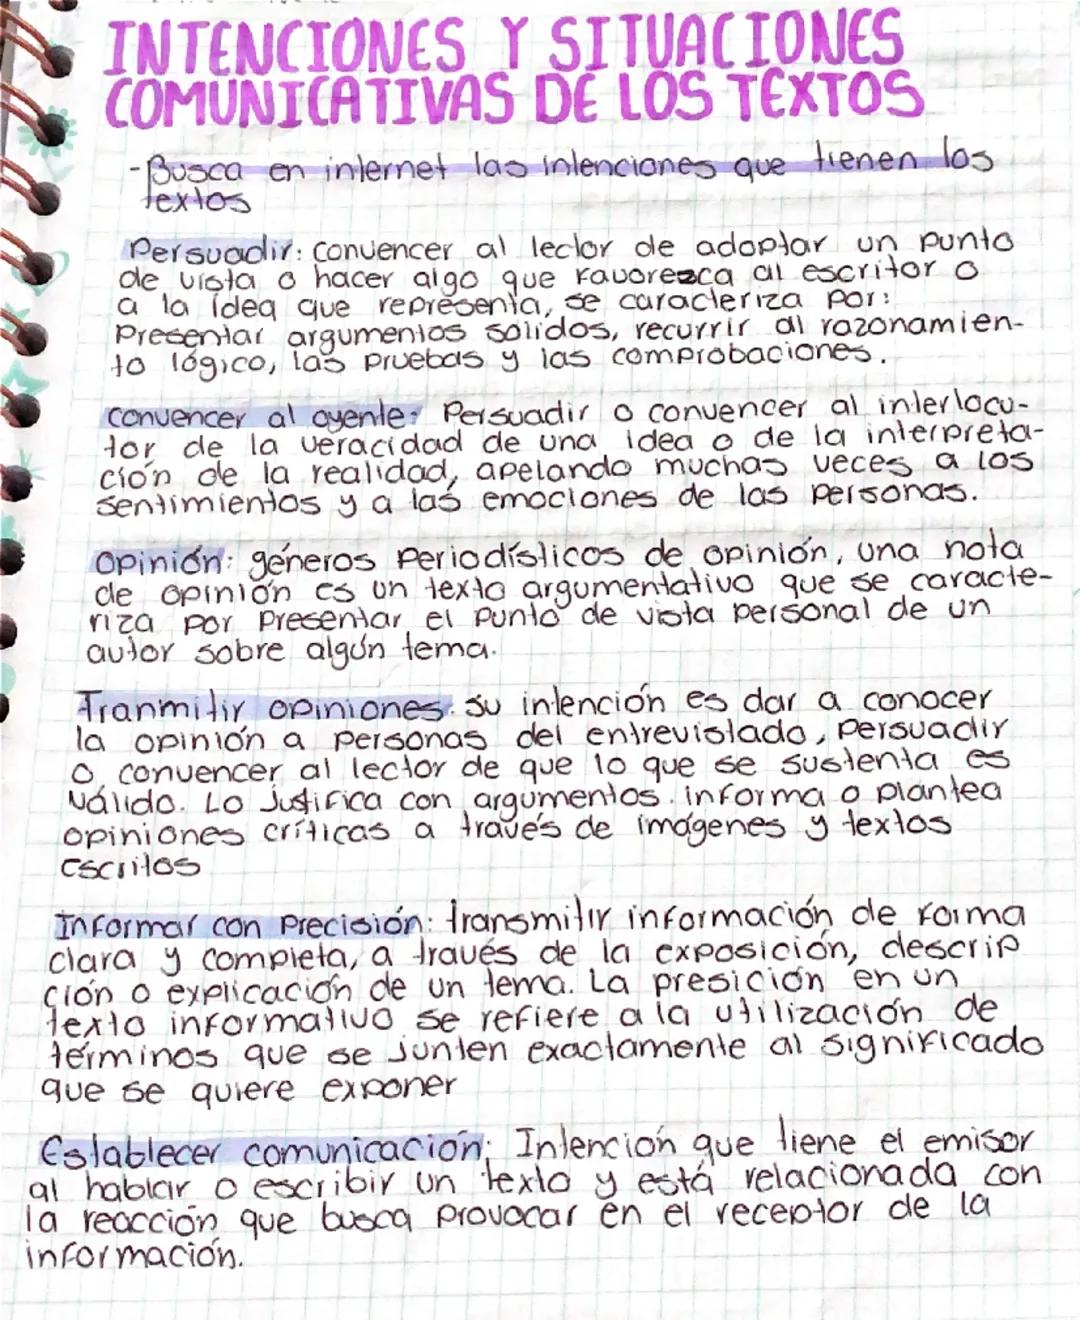 INTENCIONES Y SITUACIONES
COMUNICATIVAS DE LOS TEXTOS
-Busca en internet las intenciones que tienen los
textos
Persuadir: convencer al lector de adoptar un punto
de vista o hacer algo que favorezca al escritor o
a la idea que representa, se caracteriza por:
Presentar argumentos solidos, recurrir al razonamien-
to lógico, las pruebas y las comprobaciones.
convencer al oyente: Persuadir o convencer al interlocu-
tor de la veracidad de una idea o de la interpreta-
ción de la realidad, apelando muchas veces a los
sentimientos y a las emociones de las personas.
Opinión: géneros periodísticos de opinión, una nota
de opinión es un texto argumentativo que se caracte-
riza por presentar el punto de vista personal de un
autor sobre algún tema.
Tranmitir opiniones. su intención es dar a conocer
la opinión a personas del entrevistado, persuadir
o convencer al lector de que lo que se sustenta es
válido. Lo justifica con argumentos. informa o plantea
opiniones críticas a través de imágenes y textos
escritos
Informar con precisión: transmitir información de forma
clara y completa, a través de la exposición, descrip
ción o explicación de un tema. La presición en un
texto informativo se refiere a la utilización de
términos que se junten exactamente al significado
que se quiere exponer
Establecer comunicación: Intención que tiene el emisor
al hablar o escribir un texto y está relacionada con
la reacción que busca provocar en el receptor de la
información.